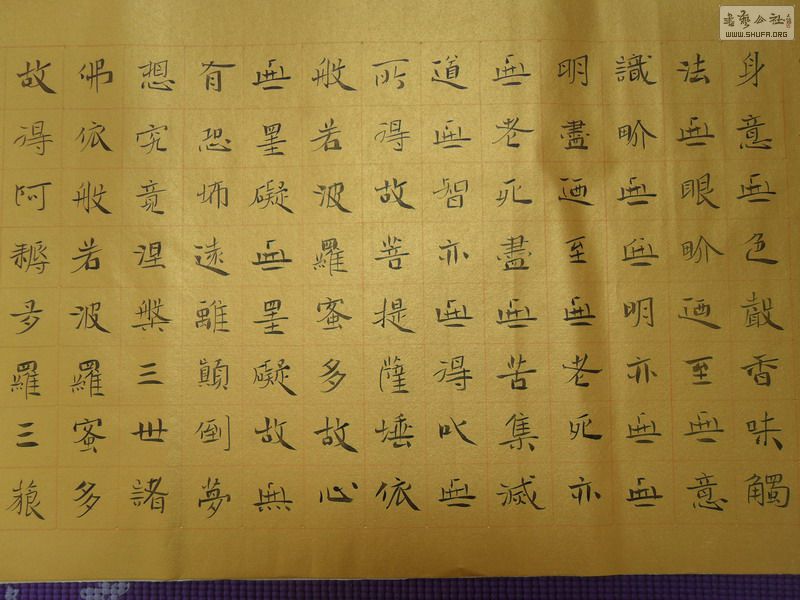 身意無色聲香味觸
法無眼畍迺至無意
識畍無無明亦無無
明盡迺至無老死亦
無老死盡無苦集滅
道無智亦無得以無
所得故菩提薩埵依
般若波羅蜜多故心
無罣礙無罣礙故無
有恐怖遠離顛倒夢
想究竟涅槃三世諸
佛依般若波羅蜜多
故得阿耨多羅三藐
書藝公社
WWW.SHUFA.ORG